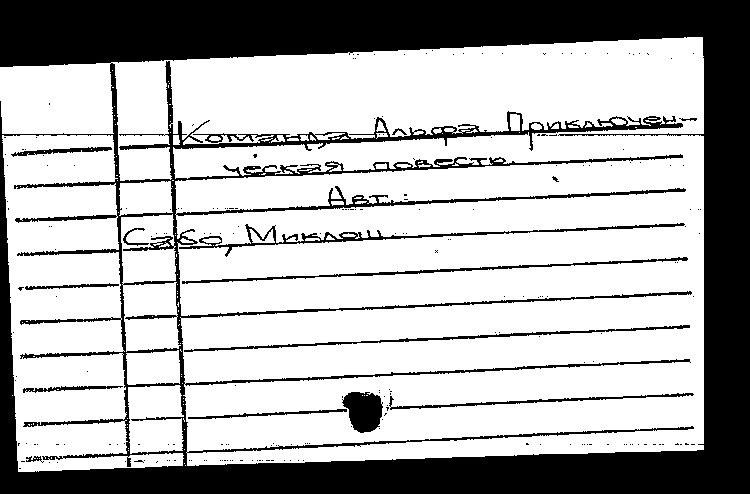 Команда Альфа. Приключен-
ческая повесть.
Авт.:
Сабо, Миклош.